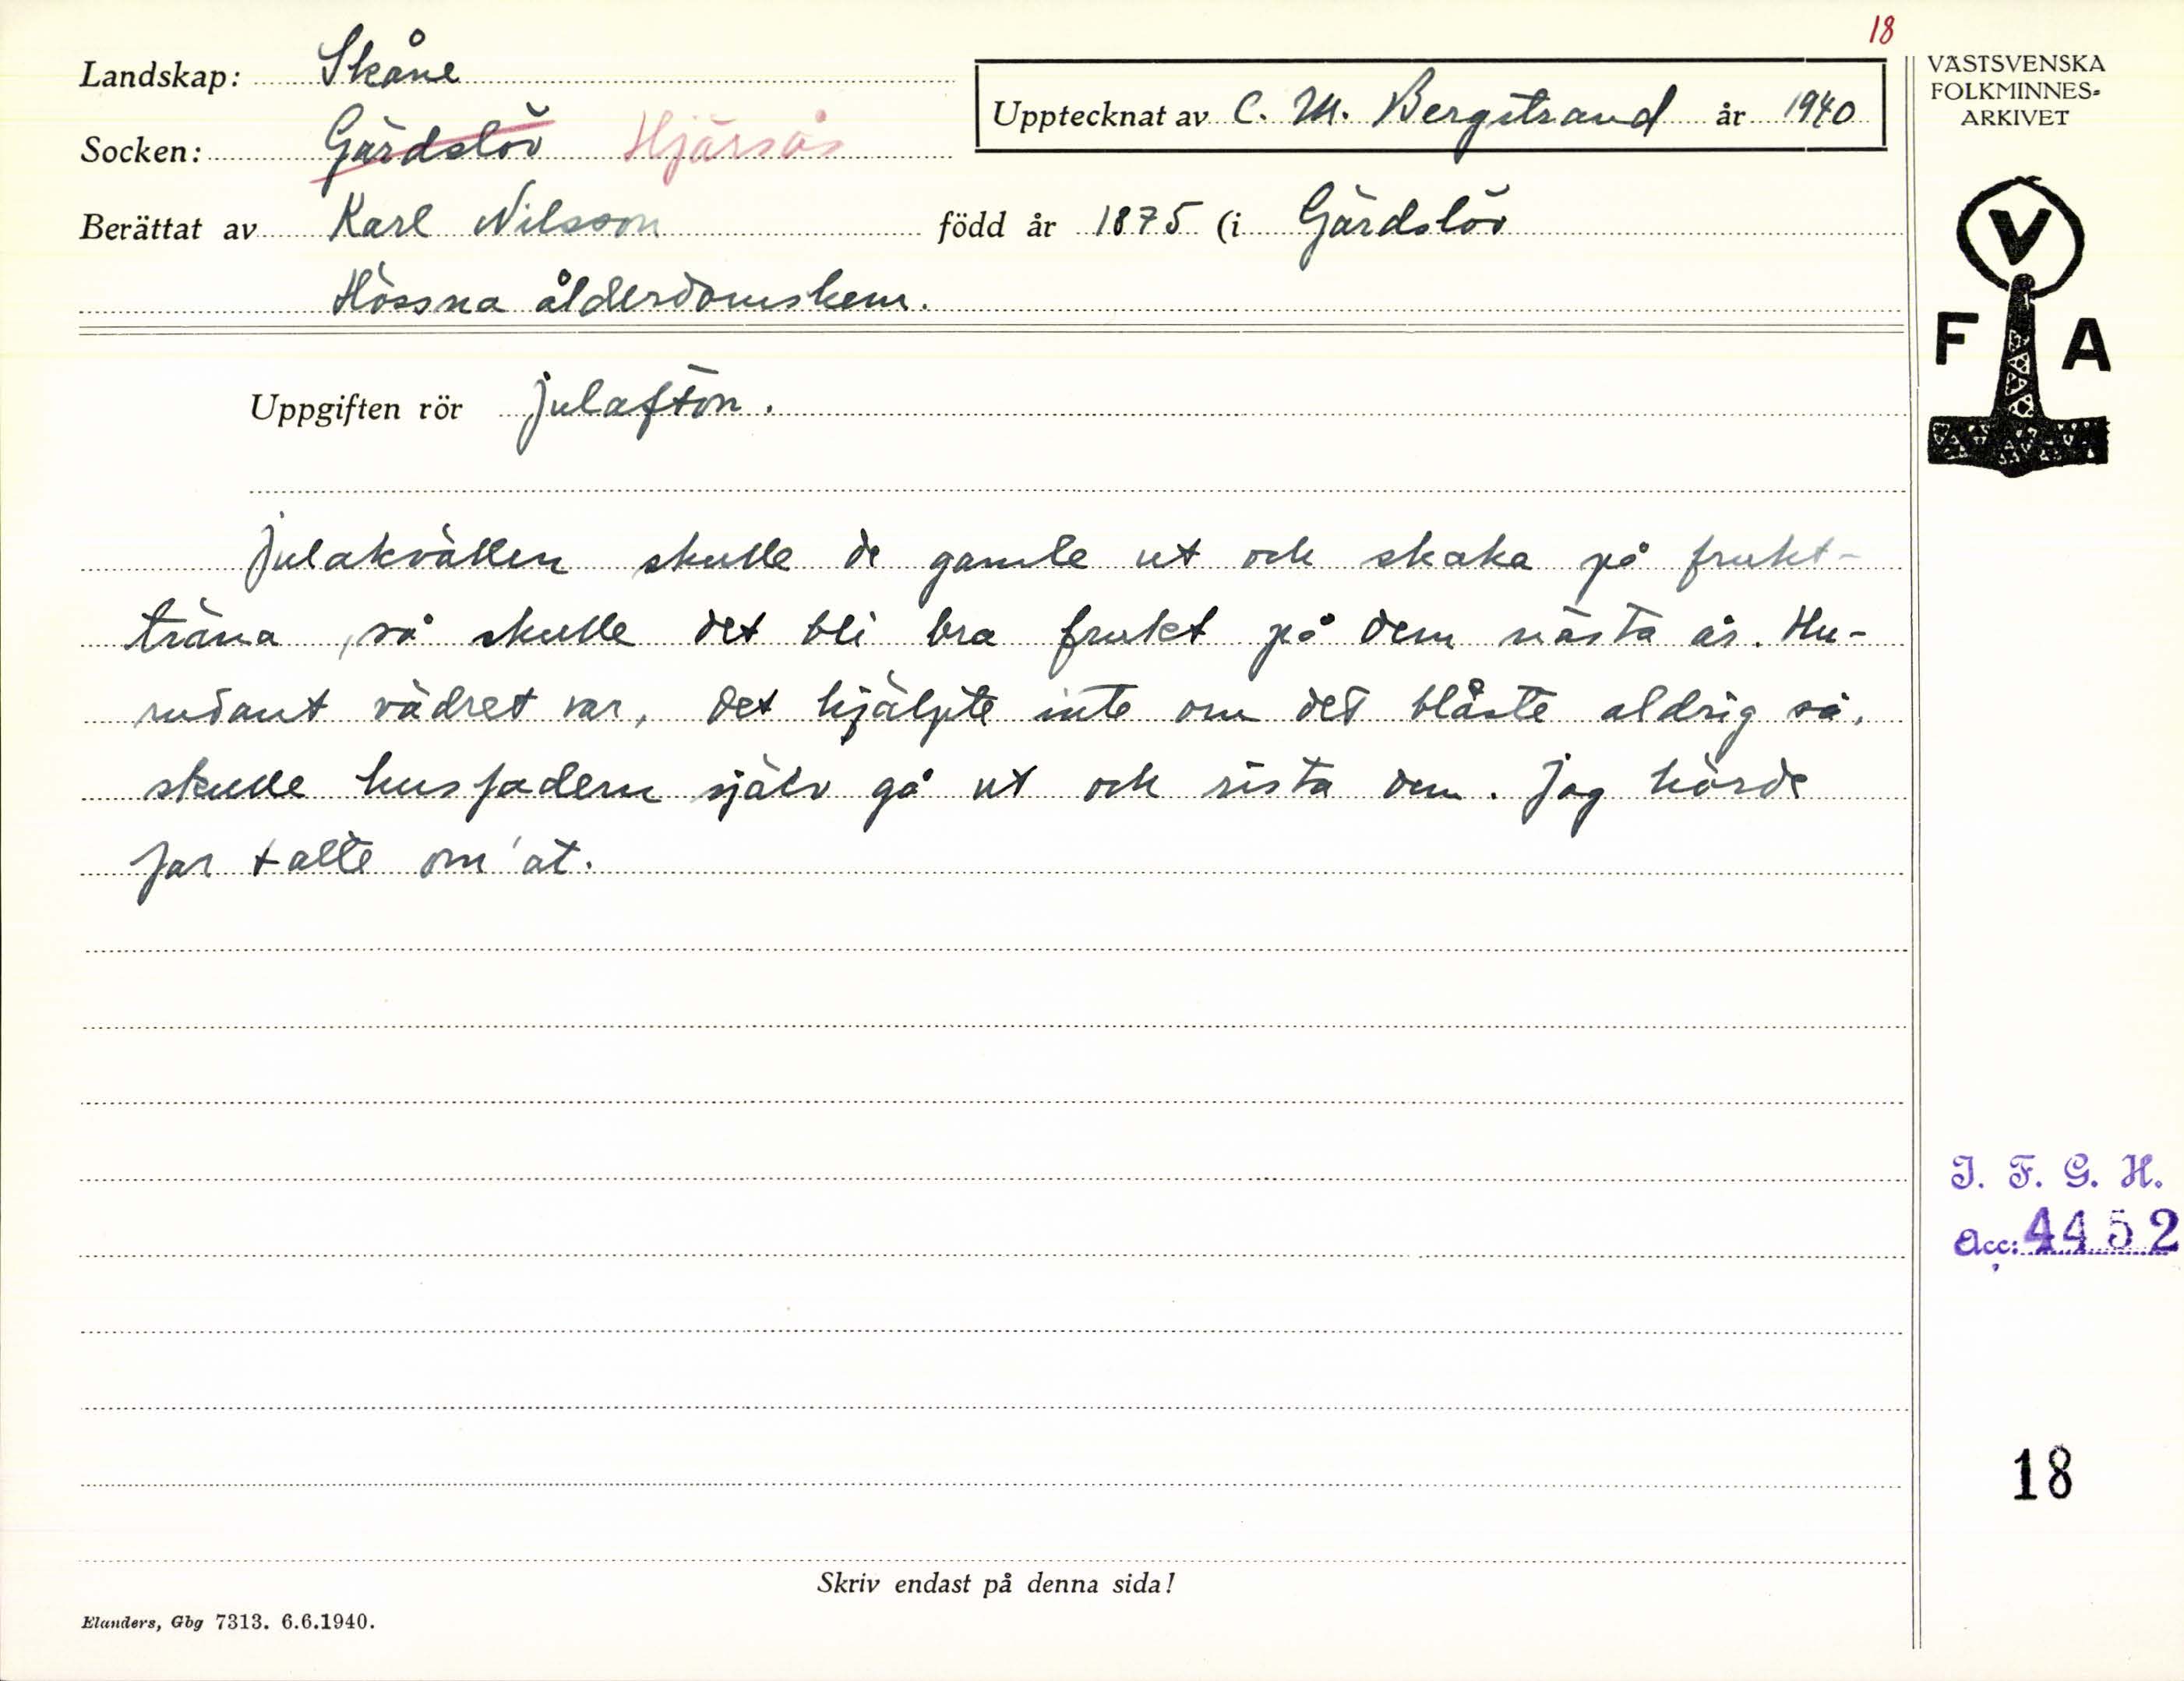 18
Landskap: Skåne
VÄSTSVENSKA
FOLKMINNES-
ARKIVET
Upptecknat av C. M. Bergstrand år 1940
Socken: Gärdslöv Hjärsås
Berättat av Karl Nilsson född år 1875 (i Gärdslöv
Hössna ålderdomshem.
V
F A
Uppgiften rör julafton.
Julakvällen skulle de gamle ut och skaka på frukt-
träna, så skulle det bli bra frukt på dem nästa år. Hu-
rudant vädret var, det hjälpte inte om det blåste aldrig så,
skulle husfadern själv gå ut och rista dem. Jag hörde
far talte om'at.
I. F. G. H.
Acc: 4452
18
Skriv endast på denna sida!
Elanders, Gbg 7313. 6.6.1940.